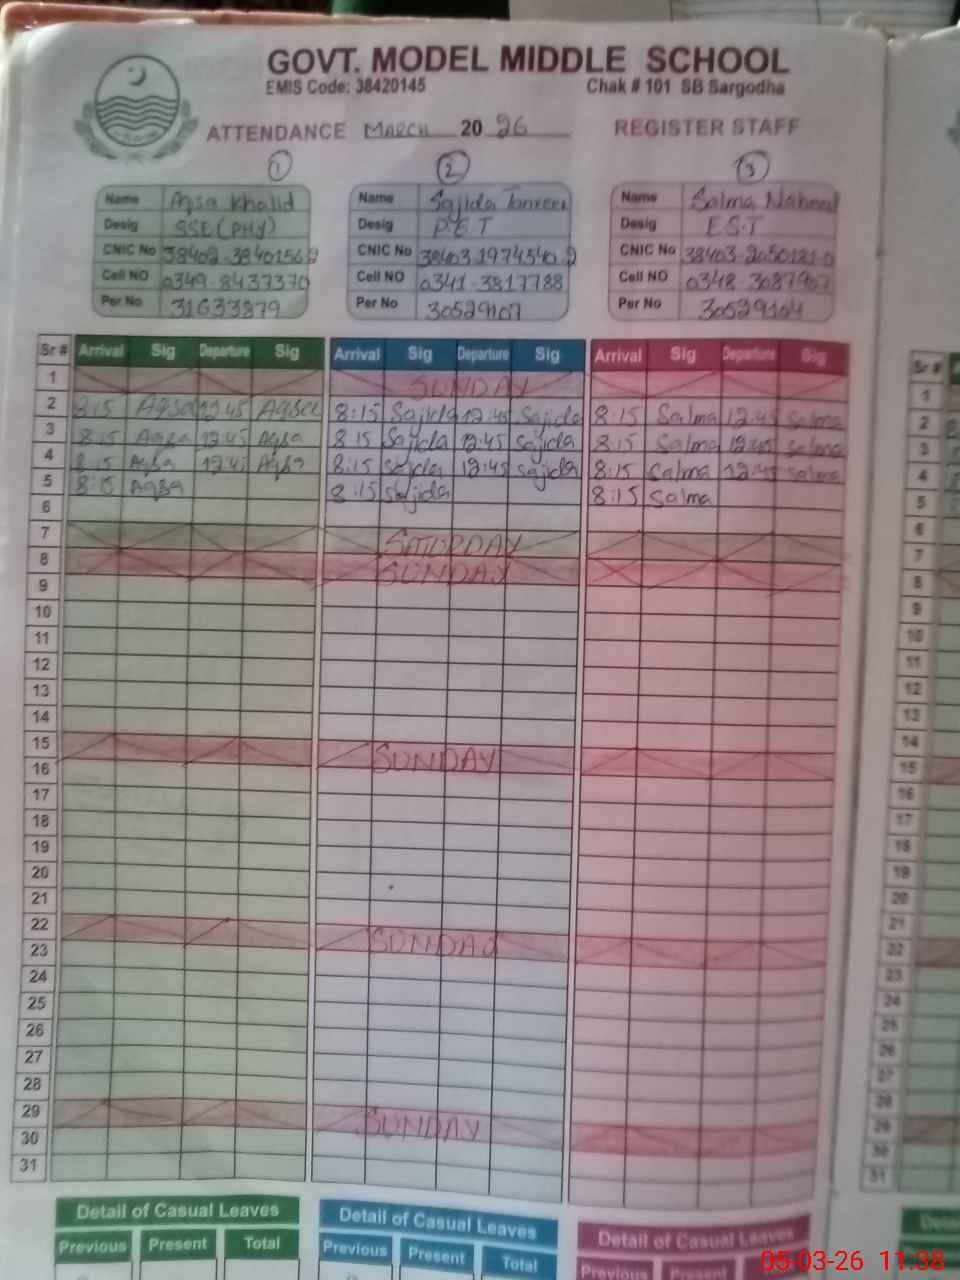 GOVT. MODEL MIDDLE SCHOOL
EMIS Code: 38420145 Chak # 101 SB Sargodha
ATTENDANCE MARCH 2026 REGISTER STAFF
1 2 3
Name Aqsa Khalid Name Sajida Tanveer Name Salma Naheed
Desig SSE(PHY) Desig P.E.T Desig E.S.T
CNIC No CNIC No CNIC No
Cell NO 0349-8437370 Cell NO 0341-3817788 Cell NO 0348-3087907
Per No 31633879 Per No 30529107 Per No 30529104
Sr # Arrival Sig Departure Sig Arrival Sig Departure Sig Arrival Sig Departure Sig Sr #
1 SUNDAY 1
2 8:15 Aqsa 12:45 Aqsa 8:15 Sajida 12:45 Sajida 8:15 Salma 12:45 Salma 2
3 8:15 Aqsa 12:45 Aqsa 8:15 Sajida 12:45 Sajida 8:15 Salma 12:45 Salma 3
4 8:15 Aqsa 12:45 Aqsa 8:15 Sajida 12:45 Sajida 8:15 Salma 12:45 Salma 4
5 8:15 Aqsa 8:15 Sajida 8:15 Salma 5
6 6
7 SATURDAY 7
8 SUNDAY 8
9 9
10 10
11 11
12 12
13 13
14 14
15 SUNDAY 15
16 16
17 17
18 18
19 19
20 20
21 21
22 SUNDAY 22
23 23
24 24
25 25
26 26
27 27
28 28
29 SUNDAY 29
30 30
31 31
Detail of Casual Leaves Detail of Casual Leaves Detail of Casual Leaves
Previous Present Total Previous Present Total Previous Present Total
05-03-26 11:38